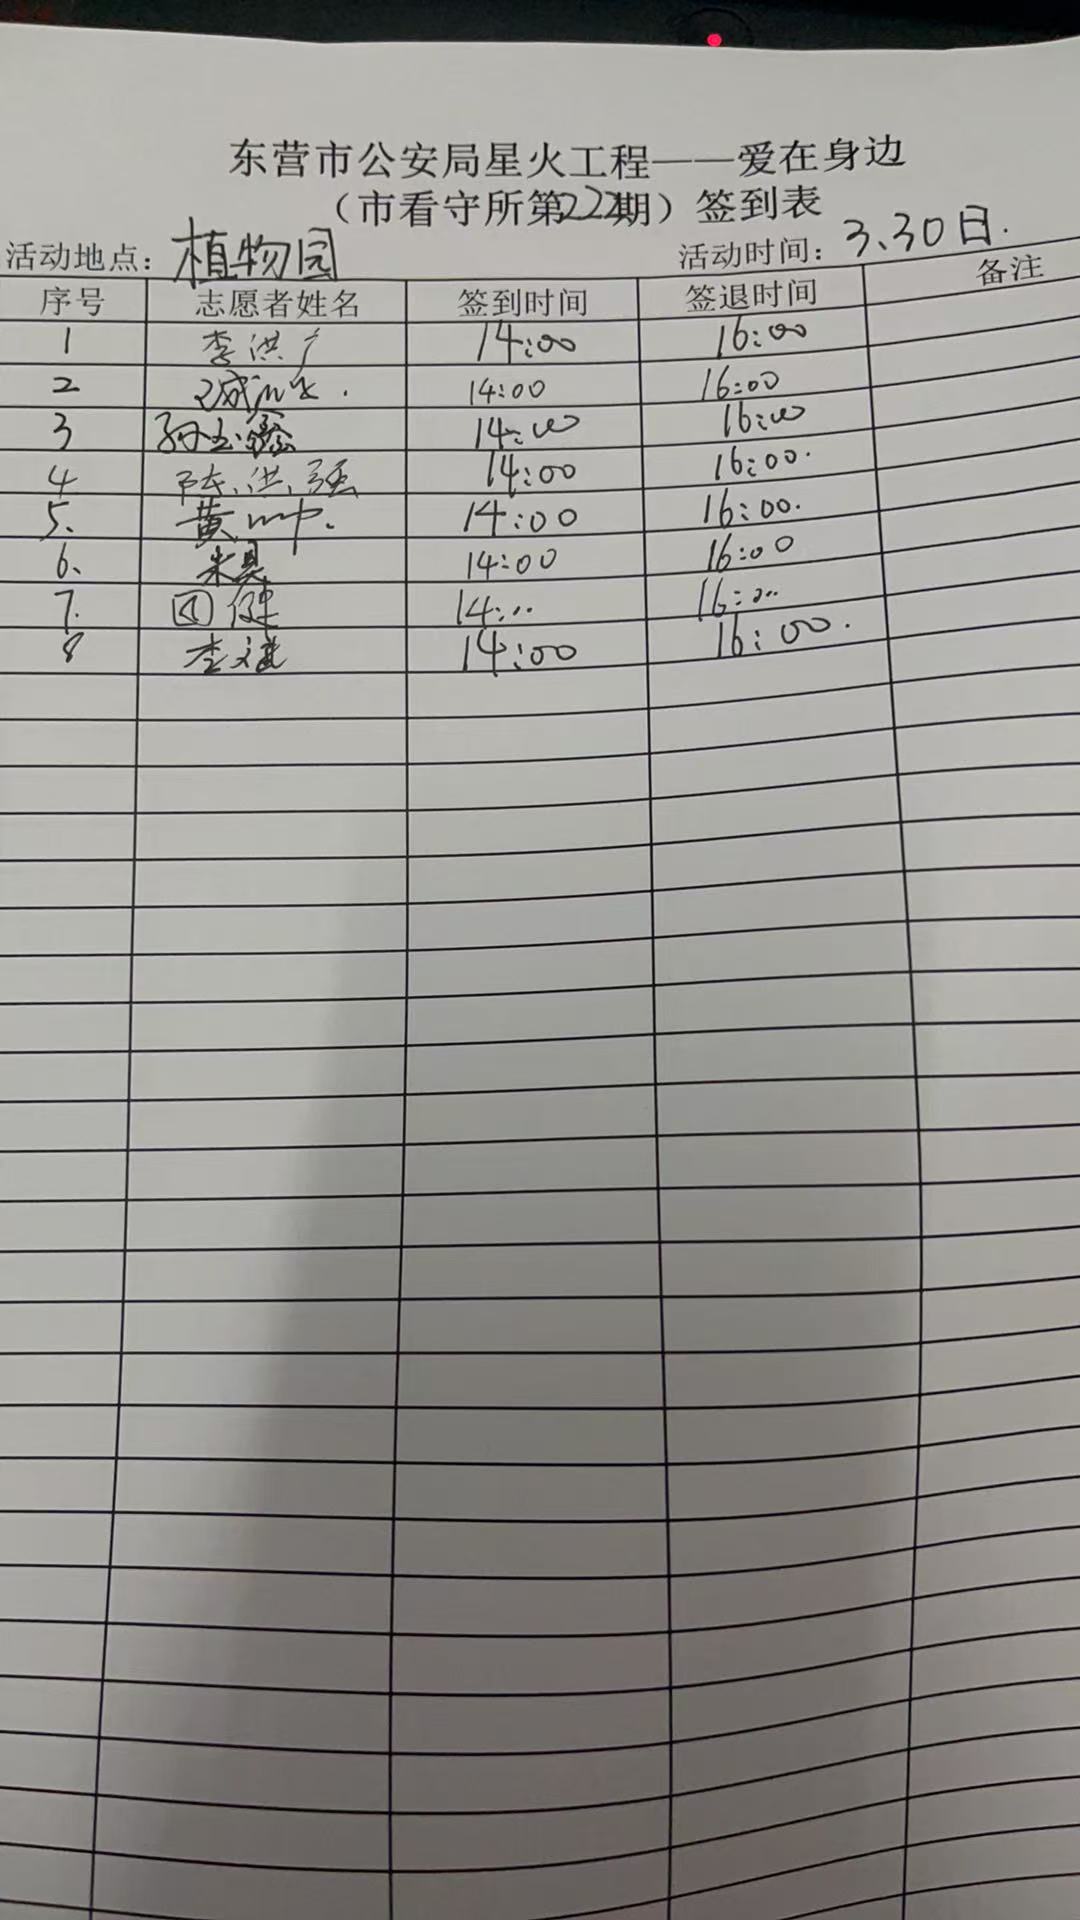 东营市公安局星火工程——爱在身边
（市看守所第222期）签到表
活动地点：植物园 活动时间：3.30日.
序号 志愿者姓名 签到时间 签退时间 备注
1 李洪广 14:00 16:00
2 14:00 16:00
3 孙玉鑫 14:00 16:00
4 陈洪强 14:00 16:00.
5、 黄 14:00 16:00.
6、 14:00 16:00
7. 健 14:00 16:00
8 李 14:00 16:00.